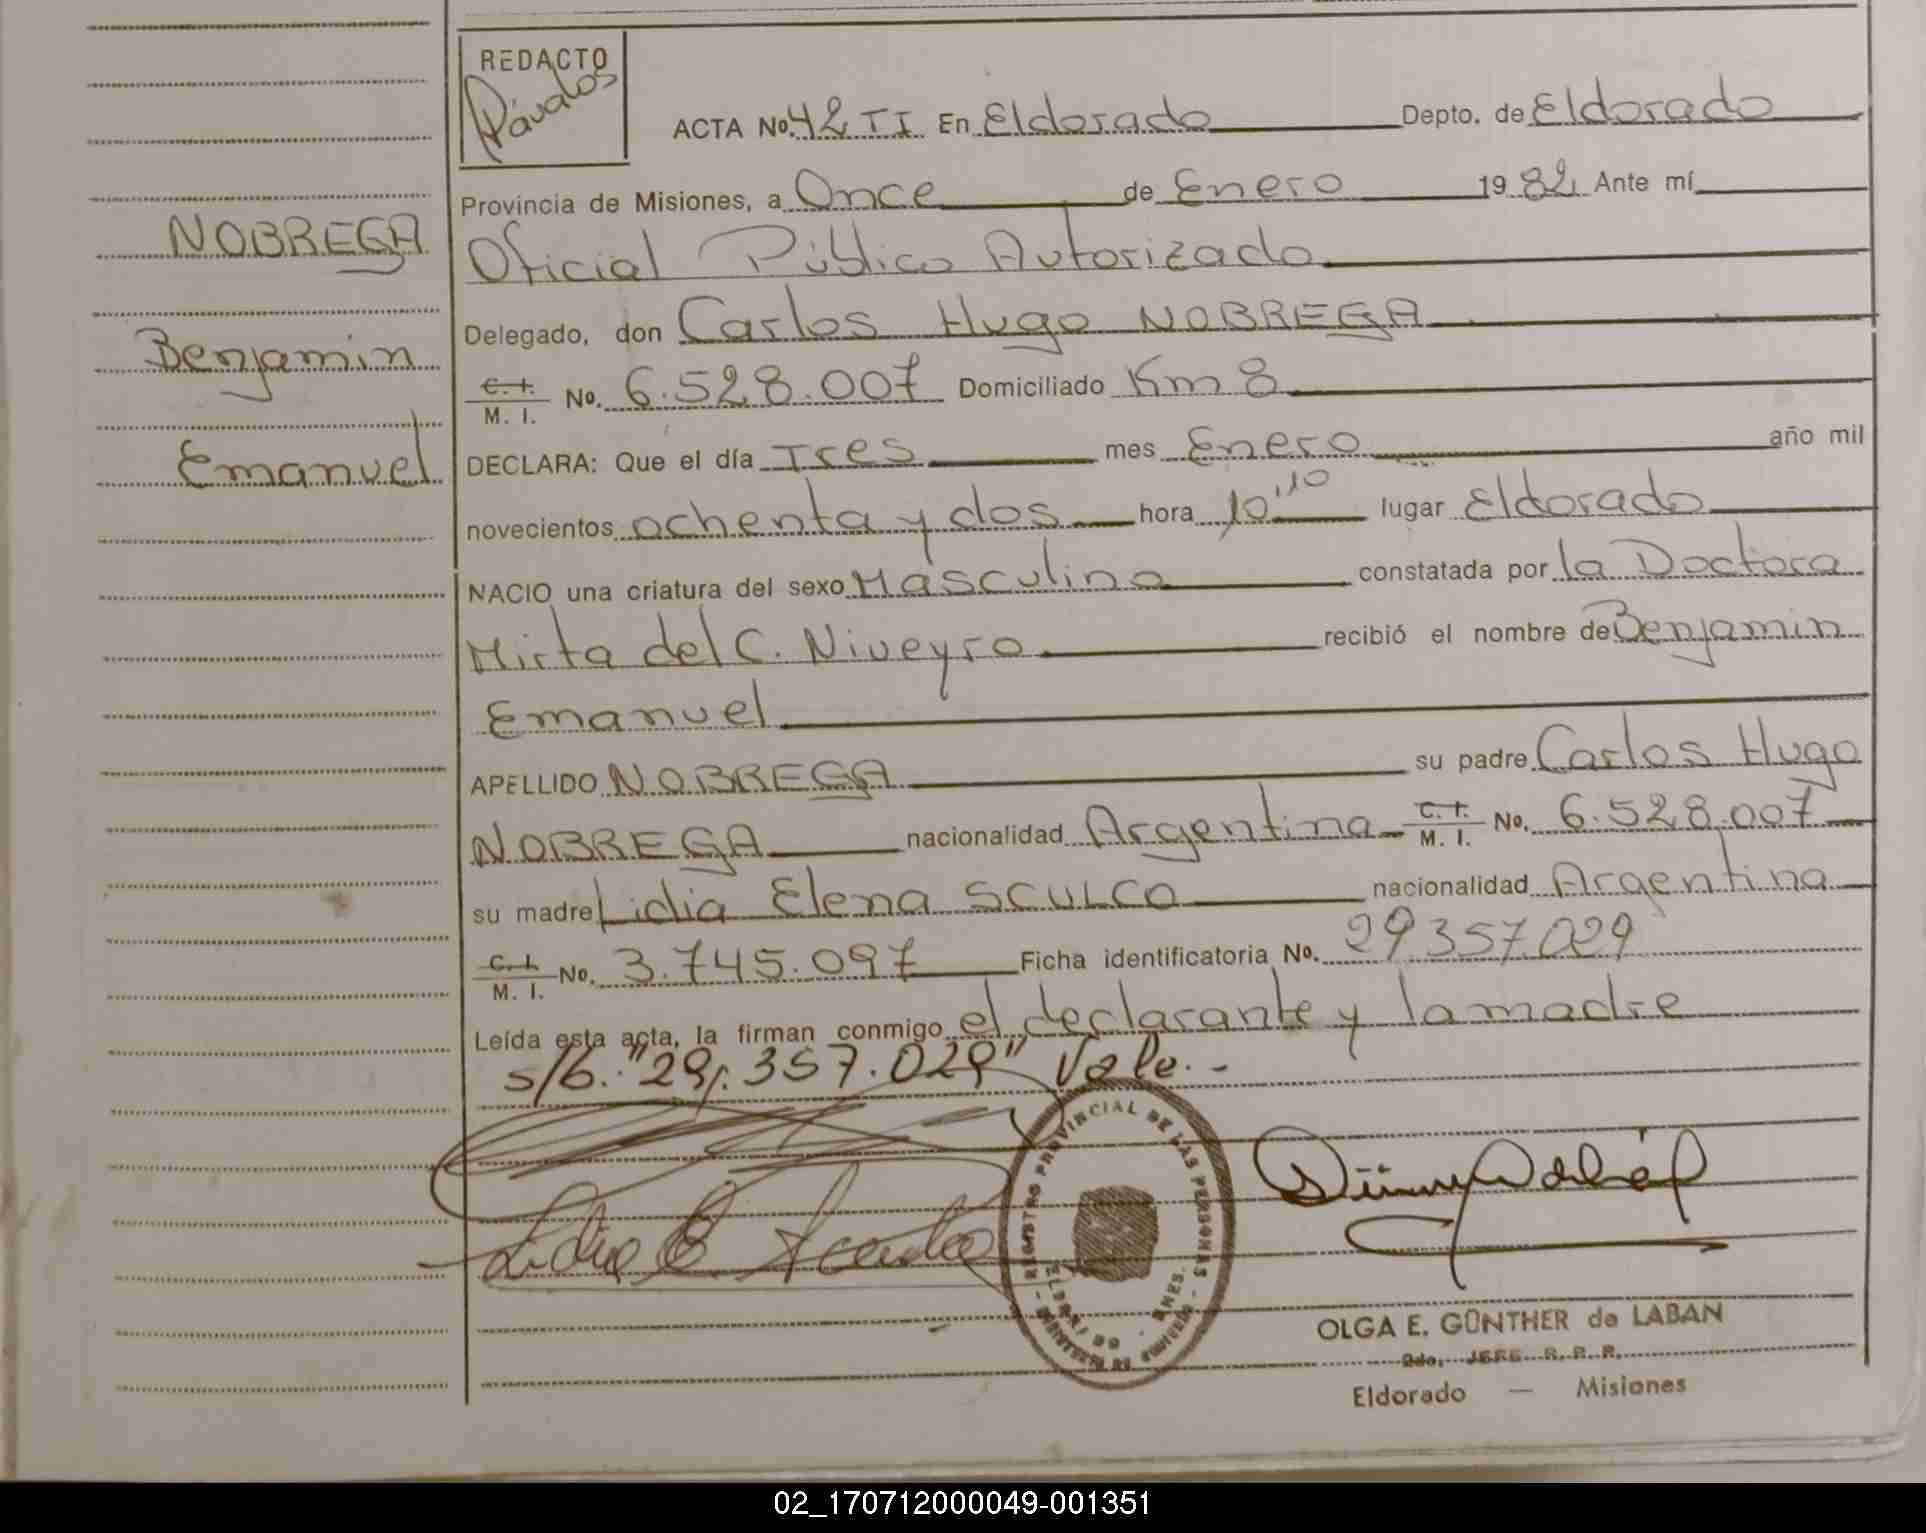 REDACTO
Dávalos
ACTA No. 42 TI En Eldorado Depto. de Eldorado
Provincia de Misiones, a Once de Enero 1982 Ante mí
NOBREGA
Oficial Público Autorizado
Delegado, don Carlos Hugo NOBREGA
Benjamin
C. I. / M. I. No. 6.528.007 Domiciliado Km 8
Emanuel
DECLARA: Que el día Tres mes Enero año mil
novecientos ochenta y dos hora 10"10 lugar Eldorado
NACIO una criatura del sexo Masculino constatada por la Doctora
Mirta del C. Niveyro recibió el nombre de Benjamin
Emanuel
APELLIDO NOBREGA su padre Carlos Hugo
NOBREGA nacionalidad Argentina C. I. / M. I. No. 6.528.007
su madre Lidia Elena SCULCO nacionalidad Argentina
C. I. / M. I. No. 3.745.097 Ficha identificatoria No. 29357.029
Leída esta acta, la firman conmigo el declarante y la madre
s/b. "29.357.029" Vale.-
REGISTRO PROVINCIAL DE LAS PERSONAS
OLGA E. GÜNTHER de LABAN
2do. JEFE R. P. P.
Eldorado — Misiones
02_170712000049-001351